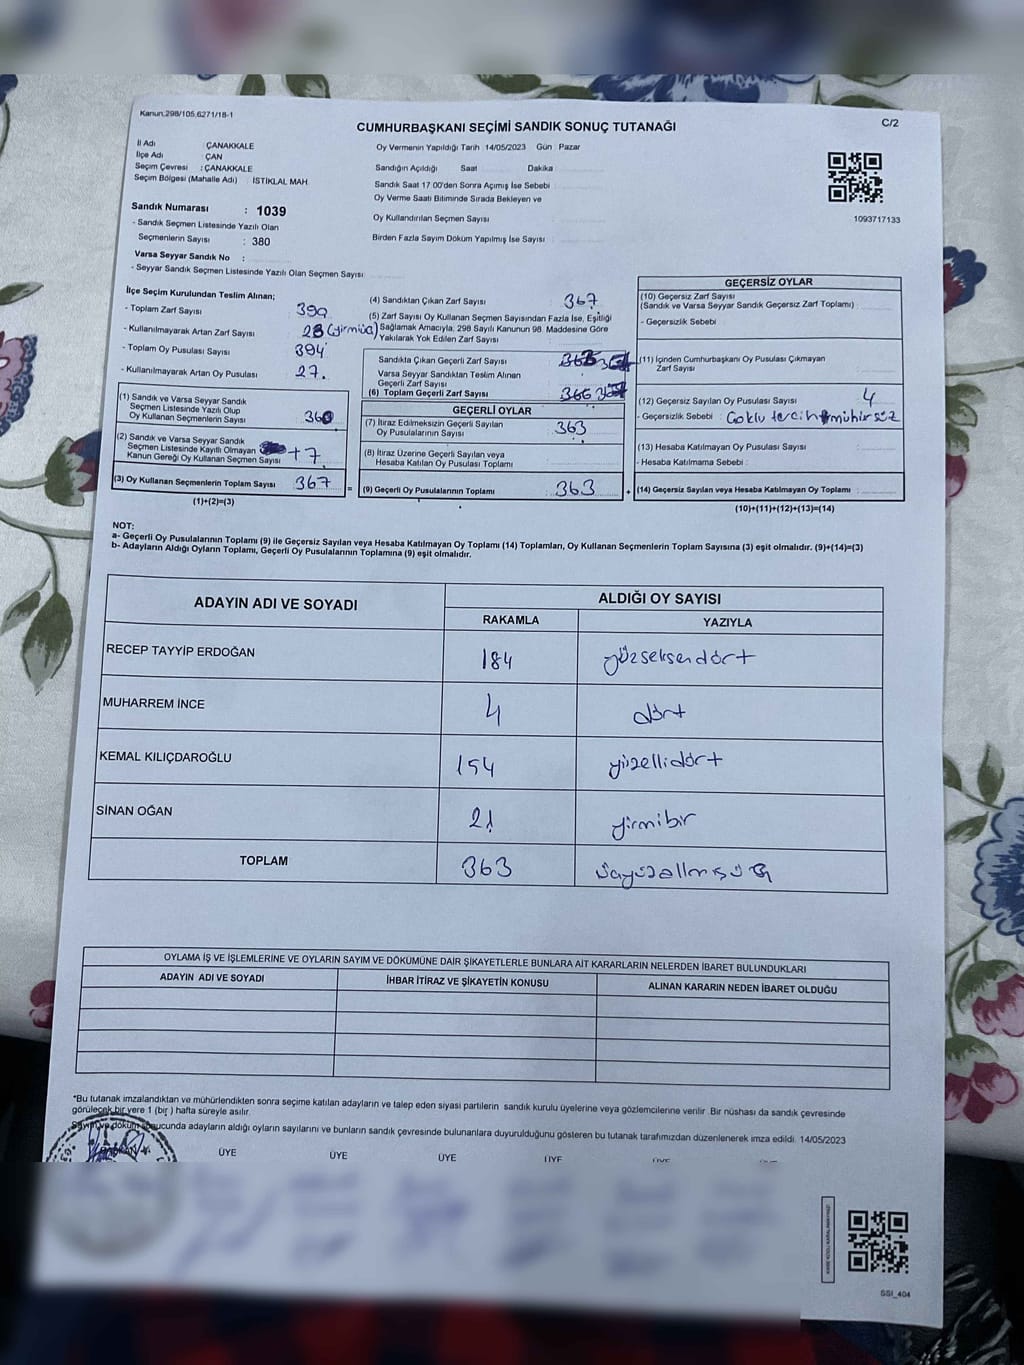 Kanun;298/105,6271/18-1
C/2
CUMHURBAŞKANI SEÇİMİ SANDIK SONUÇ TUTANAĞI
İl Adı : ÇANAKKALE
İlçe Adı : ÇAN
Seçim Çevresi : ÇANAKKALE
Seçim Bölgesi (Mahalle Adı) : İSTİKLAL MAH.
Oy Vermenin Yapıldığı Tarih 14/05/2023 Gün : Pazar
Sandığın Açıldığı Saat Dakika
Sandık Saat 17 00'den Sonra Açımış İse Sebebi
Oy Verme Saati Bitiminde Sırada Bekleyen ve
Oy Kullandırılan Seçmen Sayısı
Birden Fazla Sayım Döküm Yapılmış İse Sayısı
1093717133
Sandık Numarası : 1039
- Sandık Seçmen Listesinde Yazılı Olan
Seçmenlerin Sayısı : 380
Varsa Seyyar Sandık No :
- Seyyar Sandık Seçmen Listesinde Yazılı Olan Seçmen Sayısı
İlçe Seçim Kurulundan Teslim Alınan;
- Toplam Zarf Sayısı
- Kullanılmayarak Artan Zarf Sayısı
- Toplam Oy Pusulası Sayısı 394
- Kullanılmayarak Artan Oy Pusulası 27.
(1) Sandık ve Varsa Seyyar Sandık
Seçmen Listesinde Yazılı Olup
Oy Kullanan Seçmenlerin Sayısı 360
(2) Sandık ve Varsa Seyyar Sandık
Seçmen Listesinde Kayıtlı Olmayan
Kanun Gereği Oy Kullanan Seçmen Sayısı +7
(3) Oy Kullanan Seçmenlerin Toplam Sayısı 367 =
(1)+(2)=(3)
(4) Sandıktan Çıkan Zarf Sayısı 367
(5) Zarf Sayısı Oy Kullanan Seçmen Sayısından Fazla İse, Eşitliği
Sağlamak Amacıyla, 298 Sayılı Kanunun 98. Maddesine Göre
Yakılarak Yok Edilen Zarf Sayısı
Sandıkta Çıkan Geçerli Zarf Sayısı
Varsa Seyyar Sandıktan Teslim Alınan
Geçerli Zarf Sayısı
(6) Toplam Geçerli Zarf Sayısı
GEÇERLİ OYLAR
(7) İtiraz Edilmeksizin Geçerli Sayılan
Oy Pusulalarının Sayısı 363
(8) İtiraz Üzerine Geçerli Sayılan veya
Hesaba Katılan Oy Pusulası Toplamı
(9) Geçerli Oy Pusulalarının Toplamı : 363 +
GEÇERSİZ OYLAR
(10) Geçersiz Zarf Sayısı
(Sandık ve Varsa Seyyar Sandık Geçersiz Zarf Toplamı)
- Geçersizlik Sebebi
(11) İçinden Cumhurbaşkanı Oy Pusulası Çıkmayan
Zarf Sayısı
(12) Geçersiz Sayılan Oy Pusulası Sayısı 4
- Geçersizlik Sebebi : Çoklu tercih mühürsüz
(13) Hesaba Katılmayan Oy Pusulası Sayısı
- Hesaba Katılmama Sebebi :
(14) Geçersiz Sayılan veya Hesaba Katılmayan Oy Toplamı :
(10)+(11)+(12)+(13)=(14)
NOT:
a- Geçerli Oy Pusulalarının Toplamı (9) ile Geçersiz Sayılan veya Hesaba Katılmayan Oy Toplamı (14) Toplamları, Oy Kullanan Seçmenlerin Toplam Sayısına (3) eşit olmalıdır. (9)+(14)=(3)
b- Adayların Aldığı Oyların Toplamı, Geçerli Oy Pusulalarının Toplamına (9) eşit olmalıdır.
ADAYIN ADI VE SOYADI
ALDIĞI OY SAYISI
RAKAMLA YAZIYLA
RECEP TAYYİP ERDOĞAN 184 yüzseksendört
MUHARREM İNCE 4 dört
KEMAL KILIÇDAROĞLU 154 yüzellidört
SİNAN OĞAN 21 yirmibir
TOPLAM 363
OYLAMA İŞ VE İŞLEMLERİNE VE OYLARIN SAYIM VE DÖKÜMÜNE DAİR ŞİKAYETLERLE BUNLARA AİT KARARLARIN NELERDEN İBARET BULUNDUKLARI
ADAYIN ADI VE SOYADI İHBAR İTİRAZ VE ŞİKAYETİN KONUSU ALINAN KARARIN NEDEN İBARET OLDUĞU
*Bu tutanak imzalandıktan ve mühürlendikten sonra seçime katılan adayların ve talep eden siyasi partilerin sandık kurulu üyelerine veya gözlemcilerine verilir. Bir nüshası da sandık çevresinde
görülecek bir yere 1 (bir ) hafta süreyle asılır.
Sayım ve döküm sonucunda adayların aldığı oyların sayılarını ve bunların sandık çevresinde bulunanlara duyurulduğunu gösteren bu tutanak tarafımızdan düzenlenerek imza edildi. 14/05/2023
BAŞKAN ÜYE ÜYE ÜYE ÜYE ÜYE ÜYE
SSI_404